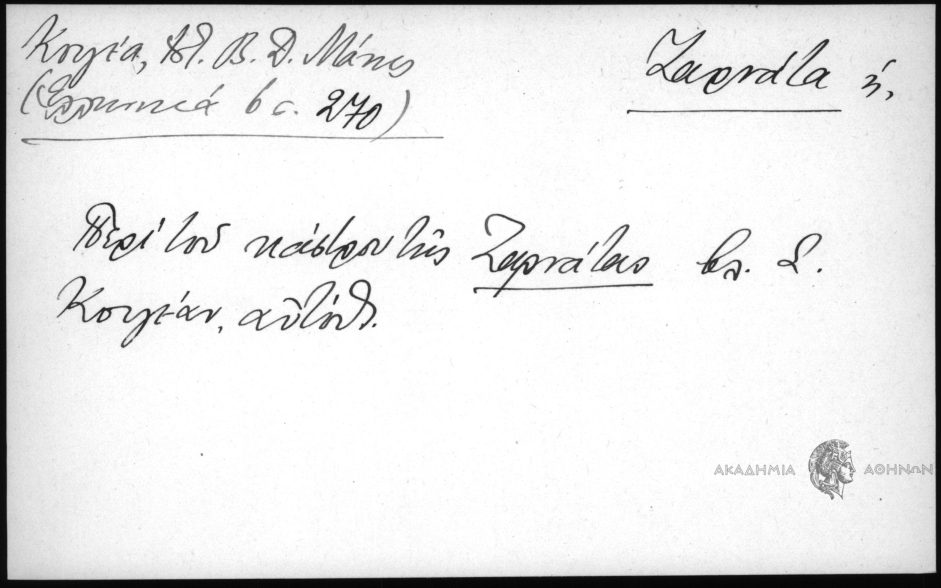 Κουγέα, Πλ. Β. Δ. Μάνης
(Ἑρμηνεία 6 σ. 270)
Ζαρνάτα ἡ,
Περὶ τοῦ κάστρου τῆς Ζαρνάτας βλ. Σ.
Κουγέαν, αὐτόθ.
ΑΚΑΔΗΜΙΑ ΑΘΗΝΩΝ